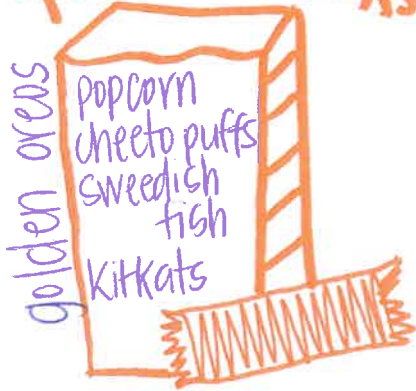 golden oreos
popcorn
cheeto puffs
sweedish
fish
kitkats